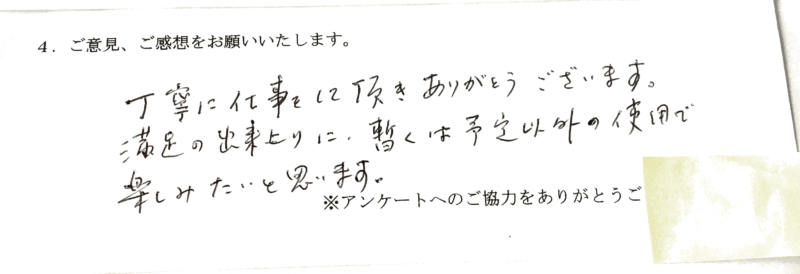 4．ご意見、ご感想をお願いいたします。
丁寧に仕事をして頂きありがとうございます。
満足の出来上りに、暫くは予定以外の使用で
楽しみたいと思います。
※アンケートへのご協力をありがとうご